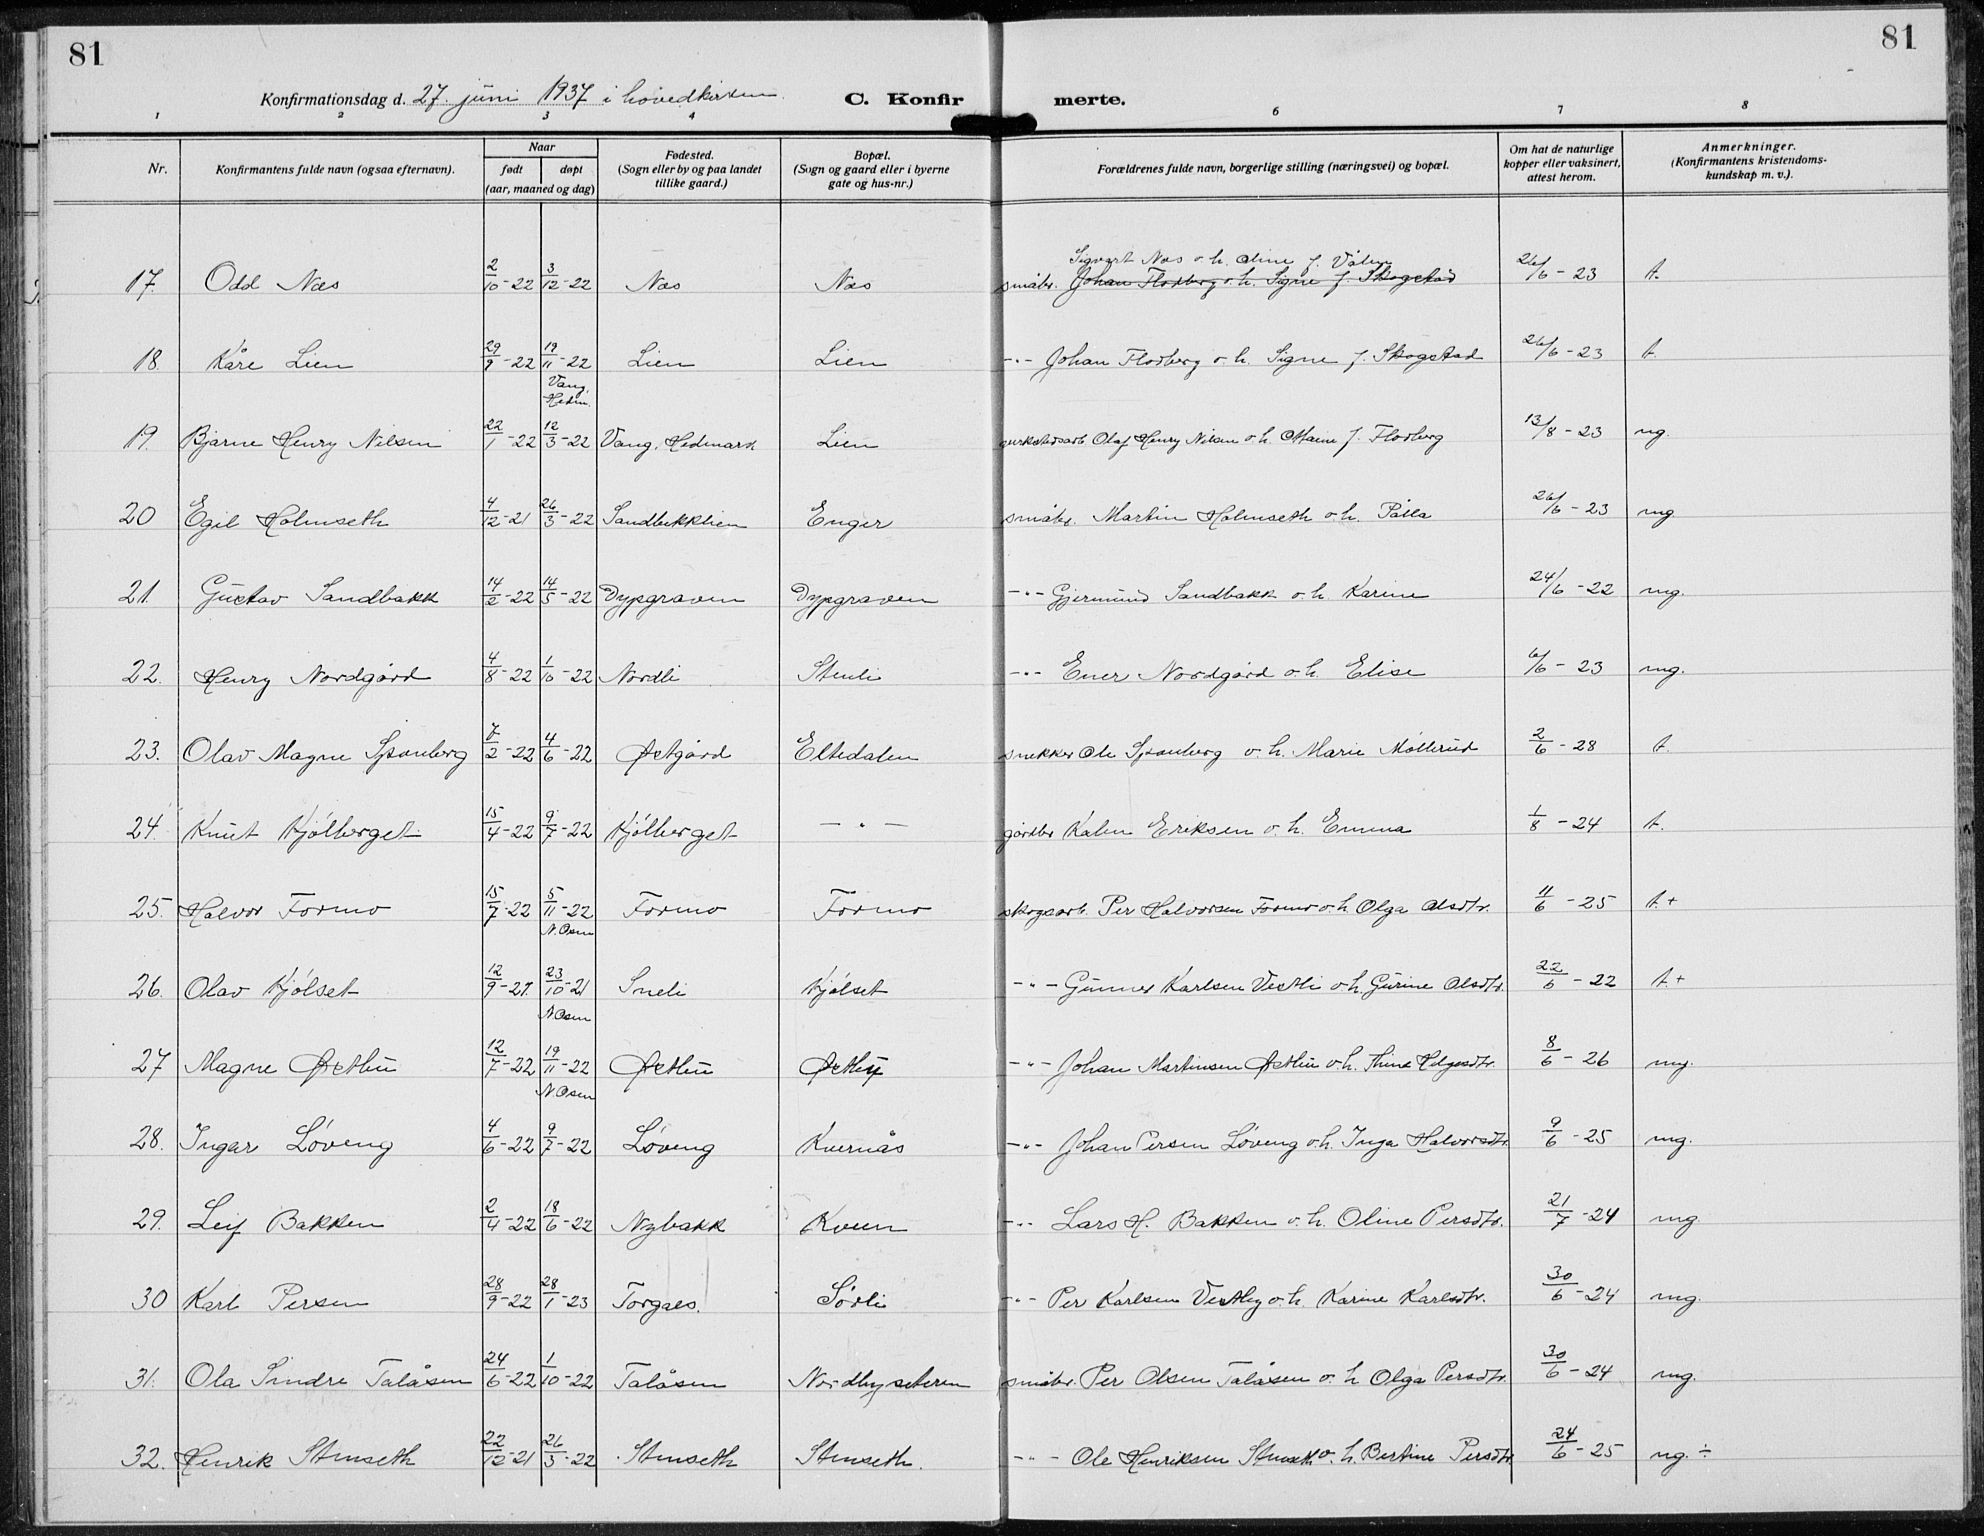 81
81
Konfirmationsdag d. 27. juni 1937 i hovedkirken
C. Konfirmerte.
1 2 3 4 6 7 8
Nr.
Konfirmantens fulde navn (ogsaa efternavn).
Naar
født døpt
(aar, maaned og dag)
Fødested.
(Sogn eller by og paa landet
tillike gaard.)
Bopæl.
(Sogn og gaard eller i byerne
gate og hus-nr.)
Forældrenes fulde navn, borgerlige stilling (næringsvei) og bopæl.
Om hat de naturlige
kopper eller vaksinert,
attest herom.
Anmerkninger.
(Konfirmantens kristendoms-
kundskap m. v.).
Sigvart Næs o. h. Oline f. Vålen
17. Odd Næs 2/10-22 3/12-22 Næs Næs småbr. Johan Flodberg o. h. Signe f. Skogstad 26/6-23 t.
18. Kåre Lien 29/9-22 19/11-22 Lien Lien -"- Johan Flodberg o. h. Signe f. Skogstad 26/6-23 t.
Vang,
Hedm.
19. Bjarne Henry Nilsen 22/1-22 12/3-22 Vang, Hedmark Lien Olaf Henry Nilsen o. h. f. Flodberg 13/8-23 mg.
20 Egil Holmseth 4/12-21 26/3-22 Sandbekklien Enger småbr. Martin Holmseth o. h. Pålla 26/6-23 mg
21. Gustav Sandbakk 14/2-22 14/5-22 Dypgraven Dypgraven -"- Gjermund Sandbakk o. h. Karine 24/6-22 mg.
22. Henry Nordgård 4/8-22 1/10-22 Nordli Stenli -"- Ener Nordgård o. h. Elise 6/6-23 mg.
23. Olav Magne Spanberg 7/2-22 4/6-22 Østgård Eltedalen snekker Ole Spanberg o. h. Marie Møllerud 2/6-28 t.
24. Knut Kjølberget 15/4-22 9/7-22 Kjølberget -"- gårdbr. Kalen Eriksen o. h. Emma 1/8-24 t.
25. Halvor Formo 15/7-22 5/11-22 Formo Formo skogsarb. Per Halvorsen Formo o. h. Olga Olsdtr. 11/6-25 t.+
N. Osen
26. Olav Kjølset 12/9-21. 23/10-21 Sneli Kjølset -"- Gunner Karlsen Vestli o. h. Gurine Olsdtr. 22/6-22 t.+
N. Osen
27 Magne Østbu 12/7-22 19/11-22 Østbu Østby -"- Johan Martinsen Østbu o. h. Thine Helgesdtr. 8/6-26 mg.
N. Osen
28. Ingar Løveng 4/6-22 9/7-22 Løveng Kvernås -"- Johan Persen Løveng o. h. Inga Halvorsdtr. 9/6-25 mg.
29. Leif Bakken 2/4-22 18/6-22 Nybakk Kveen -"- Lars H. Bakken o. h. Oline Persdtr. 21/7-24 mg
30 Karl Persen 28/9-22 28/1-23 Torgals. Sørli -"- Per Karlsen Vestby o. h. Karine Karlsdtr. 30/6-24 mg.
31. Ola Sindre Talåsen 24/6-22 1/10-22 Talåsen Nordbyseteren småbr. Per Olsen Talåsen o. h. Olga Persdtr. 30/6-24 mg.
32. Henrik Stenseth 22/12-21 26/3-22 Stenseth Stenseth. -"- Ole Henriksen Stenseth o. h. Bertine Persdtr. 24/6-25 ng. ÷